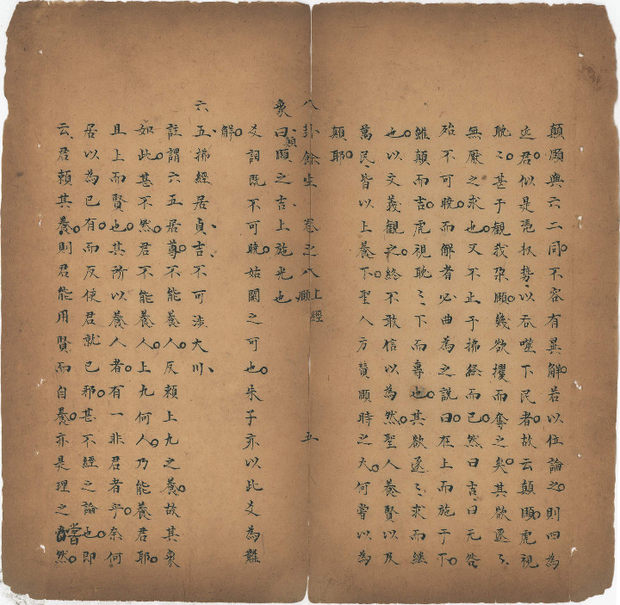 顛頤與六二同不容有異解若以位論之則四為
近君似是憑权势以吞噬下民者故云顛頤虎視
耽〻甚于觀我朶頤幾欲攫而奪之矣其欲逐〻
無厭之求也又不止于拂經而已然曰吉曰无咎
殆不可暁而解者必曲為之說曰在上而施于下
雖顛而吉虎視耽〻下而專也其欲逐〻求而継
也以文義觀之終不敢信以為然聖人養賢以及
萬民皆以上養下聖人方賛頤時之大何嘗以為
顛耶
八卦餘生 卷之八 上經 頤 五
象曰顛頤之吉上施光也
爻詞既不可暁姑闕之可也朱子亦以此爻為難
解
六五拂經居貞吉不可涉大川
註謂六五居尊不能養人反賴上九之養故其象
如此甚不然君不能養人上九何人乃能養君耶
且上而賢也其所以養人者有一非君者乎奈何
居以為已有而反使君就已邪甚不經之論也即
云君賴其養則君能用賢而自養亦是理之當然